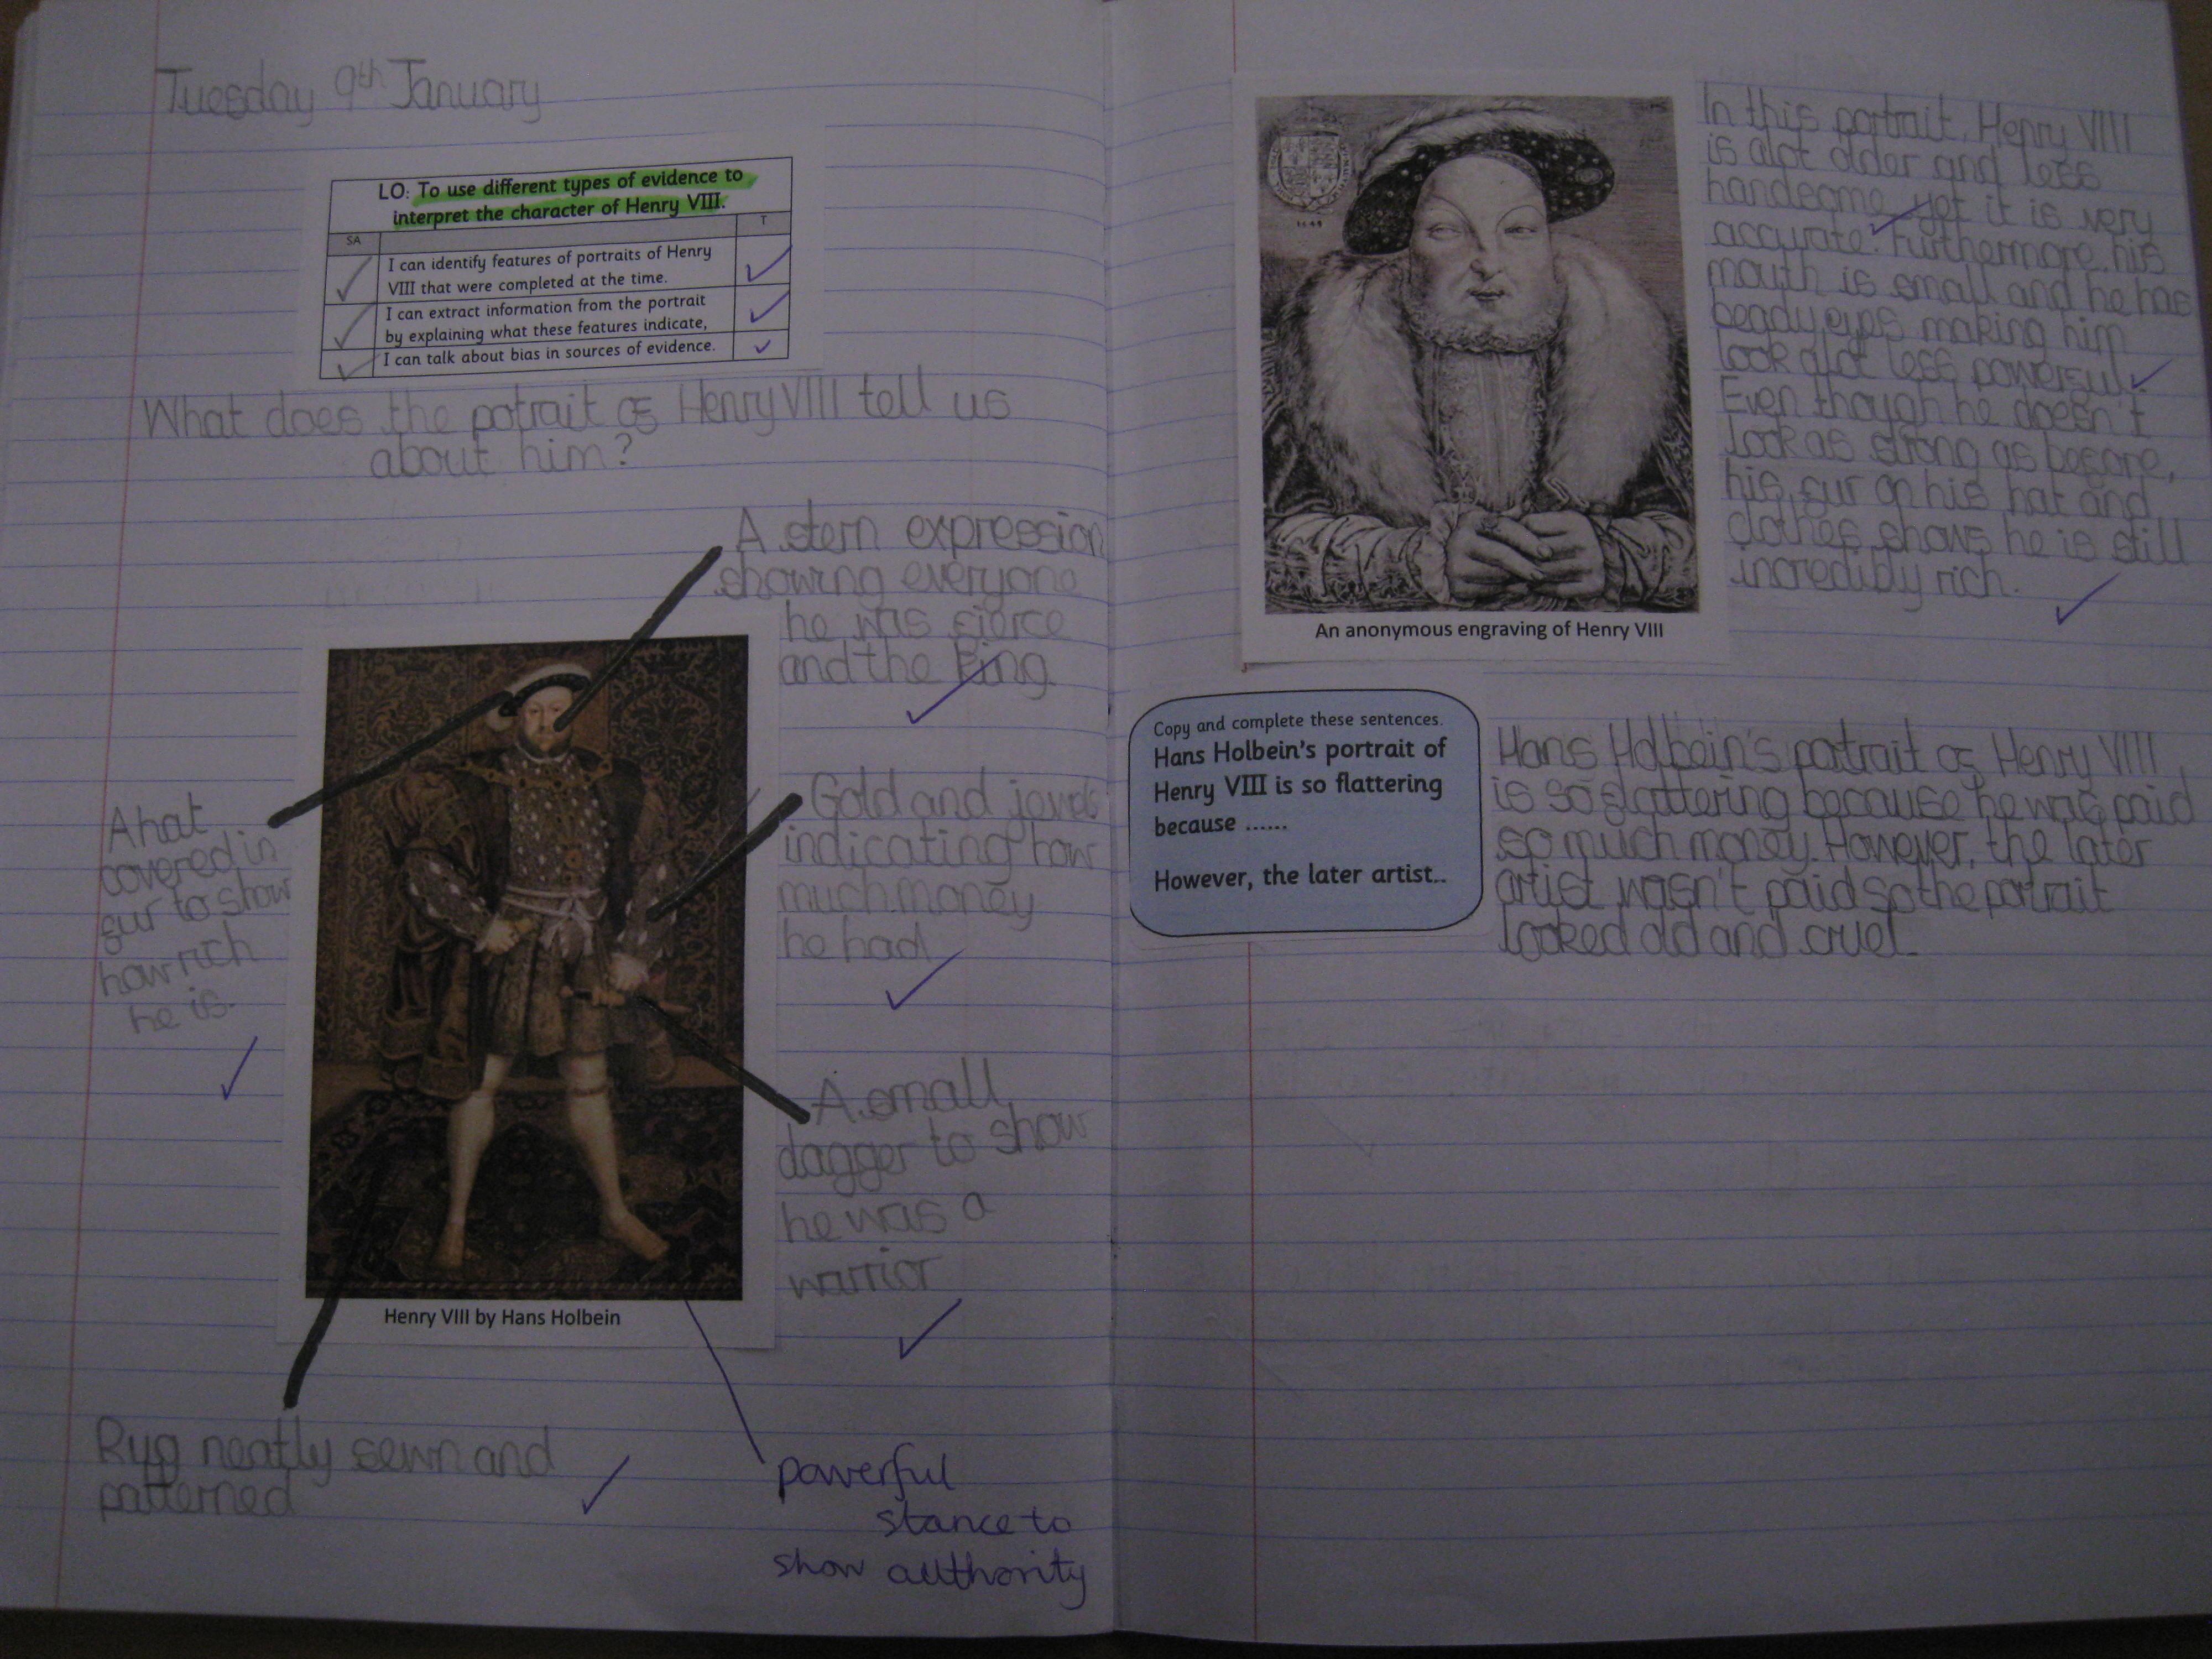 Tuesday 9th January
LO: To use different types of evidence to
interpret the character of Henry VIII.
SA
T
I can identify features of portraits of Henry
VIII that were completed at the time.
I can extract information from the portrait
by explaining what these features indicate,
I can talk about bias in sources of evidence.
What does the potrait of Henry VIII tell us
about him?
A stern expression
showing everyone
he was fierce
and the king.
A hat
covered in
fur to show
how rich
he is.
Gold and jewels
indicating how
much money
he had
A small
dagger to show
he was a
warrior
Henry VIII by Hans Holbein
Rug neatly sewn and
patterned
powerful
stance to
show authority
In this portrait, Henry VIII
is alot older and less
handsome yet it is very
accurate. Furthermore, his
mouth is small and he has
beady eyes making him
look alot less powerful.
Even though he doesn't
look as strong as before,
his fur on his hat and
clothes shows he is still
incredibly rich.
An anonymous engraving of Henry VIII
Copy and complete these sentences.
Hans Holbein's portrait of
Henry VIII is so flattering
because ......
However, the later artist..
Hans Holbein's portrait of Henry VIII
is so flattering because he was paid
so much money. However, the later
artist wasn't paid so the portrait
looked old and cruel.